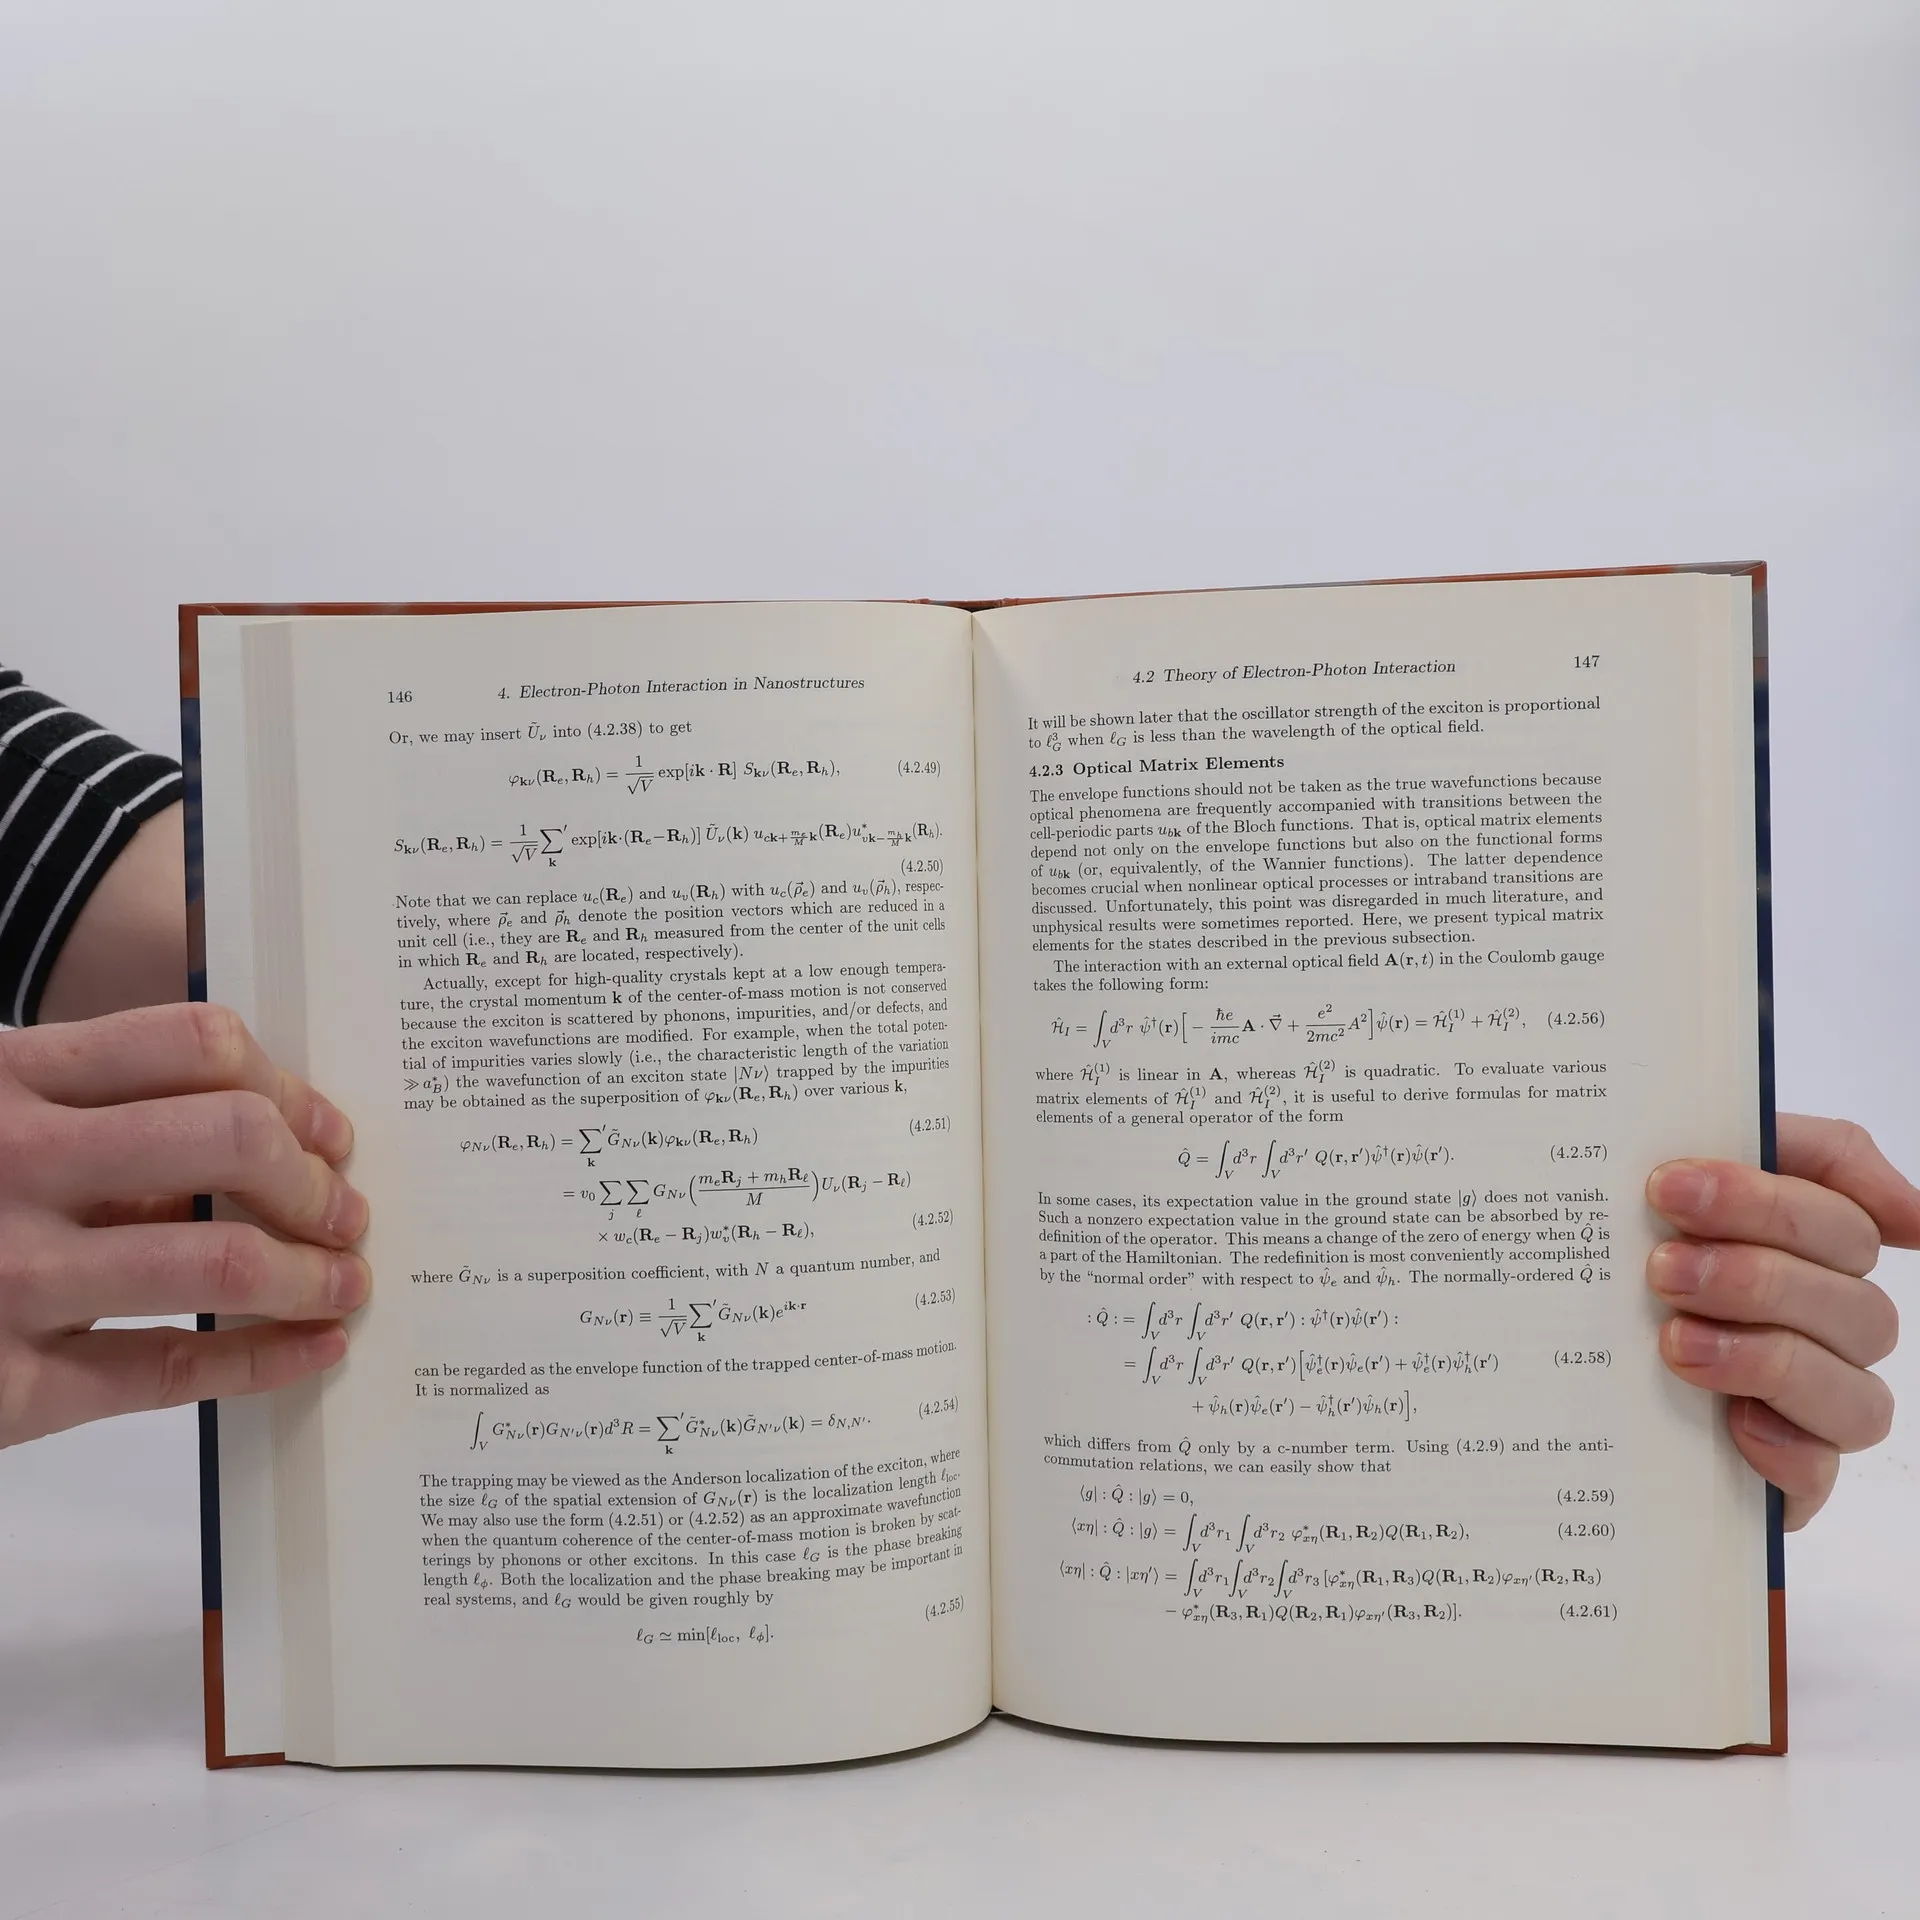 146 4. Electron-Photon Interaction in Nanostructures
Or, we may insert Ũ_ν into (4.2.38) to get
φ_{kν}(R_e, R_h) = 1/√V exp[ik · R] S_{kν}(R_e, R_h), (4.2.49)
S_{kν}(R_e, R_h) = 1/√V ∑′_k exp[ik·(R_e−R_h)] Ũ_ν(k) u_{ck+(m_e/M)k}(R_e)u*_{vk−(m_h/M)k}(R_h).
(4.2.50)
Note that we can replace u_c(R_e) and u_v(R_h) with u_c(ρ⃗_e) and u_v(ρ⃗_h), respec-
tively, where ρ⃗_e and ρ⃗_h denote the position vectors which are reduced in a
unit cell (i.e., they are R_e and R_h measured from the center of the unit cells
in which R_e and R_h are located, respectively).
Actually, except for high-quality crystals kept at a low enough tempera-
ture, the crystal momentum k of the center-of-mass motion is not conserved
because the exciton is scattered by phonons, impurities, and/or defects, and
the exciton wavefunctions are modified. For example, when the total poten-
tial of impurities varies slowly (i.e., the characteristic length of the variation
≫ a*_B) the wavefunction of an exciton state |Nν⟩ trapped by the impurities
may be obtained as the superposition of φ_{kν}(R_e, R_h) over various k,
φ_{Nν}(R_e, R_h) = ∑′_k G̃_{Nν}(k)φ_{kν}(R_e, R_h) (4.2.51)
= v_0 ∑_j ∑_ℓ G_{Nν}((m_eR_j + m_hR_ℓ)/M)U_ν(R_j − R_ℓ)
× w_c(R_e − R_j)w*_v(R_h − R_ℓ), (4.2.52)
where G̃_{Nν} is a superposition coefficient, with N a quantum number, and
G_{Nν}(r) ≡ 1/√V ∑′_k G̃_{Nν}(k)e^{ik·r} (4.2.53)
can be regarded as the envelope function of the trapped center-of-mass motion.
It is normalized as
∫_V G*_{Nν}(r)G_{N′ν}(r)d³R = ∑′_k G̃*_{Nν}(k)G̃_{N′ν}(k) = δ_{N,N′}. (4.2.54)
The trapping may be viewed as the Anderson localization of the exciton, where
the size ℓ_G of the spatial extension of G_{Nν}(r) is the localization length ℓ_loc.
We may also use the form (4.2.51) or (4.2.52) as an approximate wavefunction
when the quantum coherence of the center-of-mass motion is broken by scat-
terings by phonons or other excitons. In this case ℓ_G is the phase breaking
length ℓ_ϕ. Both the localization and the phase breaking may be important in
real systems, and ℓ_G would be given roughly by
ℓ_G ≃ min[ℓ_loc, ℓ_ϕ]. (4.2.55)
4.2 Theory of Electron-Photon Interaction 147
It will be shown later that the oscillator strength of the exciton is proportional
to ℓ³_G when ℓ_G is less than the wavelength of the optical field.
4.2.3 Optical Matrix Elements
The envelope functions should not be taken as the true wavefunctions because
optical phenomena are frequently accompanied with transitions between the
cell-periodic parts u_{bk} of the Bloch functions. That is, optical matrix elements
depend not only on the envelope functions but also on the functional forms
of u_{bk} (or, equivalently, of the Wannier functions). The latter dependence
becomes crucial when nonlinear optical processes or intraband transitions are
discussed. Unfortunately, this point was disregarded in much literature, and
unphysical results were sometimes reported. Here, we present typical matrix
elements for the states described in the previous subsection.
The interaction with an external optical field A(r, t) in the Coulomb gauge
takes the following form:
Ĥ_I = ∫_V d³r ψ̂†(r)[− ħe/imc A · ∇⃗ + e²/2mc² A²]ψ̂(r) = Ĥ_I^(1) + Ĥ_I^(2), (4.2.56)
where Ĥ_I^(1) is linear in A, whereas Ĥ_I^(2) is quadratic. To evaluate various
matrix elements of Ĥ_I^(1) and Ĥ_I^(2), it is useful to derive formulas for matrix
elements of a general operator of the form
Q̂ = ∫_V d³r ∫_V d³r′ Q(r, r′)ψ̂†(r)ψ̂(r′). (4.2.57)
In some cases, its expectation value in the ground state |g⟩ does not vanish.
Such a nonzero expectation value in the ground state can be absorbed by re-
definition of the operator. This means a change of the zero of energy when Q̂ is
a part of the Hamiltonian. The redefinition is most conveniently accomplished
by the “normal order” with respect to ψ̂_e and ψ̂_h. The normally-ordered Q̂ is
: Q̂ : = ∫_V d³r ∫_V d³r′ Q(r, r′) : ψ̂†(r)ψ̂(r′) :
= ∫_V d³r ∫_V d³r′ Q(r, r′)[ψ̂†_e(r)ψ̂_e(r′) + ψ̂†_e(r)ψ̂†_h(r′) (4.2.58)
+ ψ̂_h(r)ψ̂_e(r′) − ψ̂†_h(r′)ψ̂_h(r)],
which differs from Q̂ only by a c-number term. Using (4.2.9) and the anti-
commutation relations, we can easily show that
⟨g| : Q̂ : |g⟩ = 0, (4.2.59)
⟨xη| : Q̂ : |g⟩ = ∫_V d³r_1 ∫_V d³r_2 φ*_{xη}(R_1, R_2)Q(R_1, R_2), (4.2.60)
⟨xη| : Q̂ : |xη′⟩ = ∫_V d³r_1 ∫_V d³r_2 ∫_V d³r_3 [φ*_{xη}(R_1, R_3)Q(R_1, R_2)φ_{xη′}(R_2, R_3)
− φ*_{xη}(R_3, R_1)Q(R_2, R_1)φ_{xη′}(R_3, R_2)]. (4.2.61)